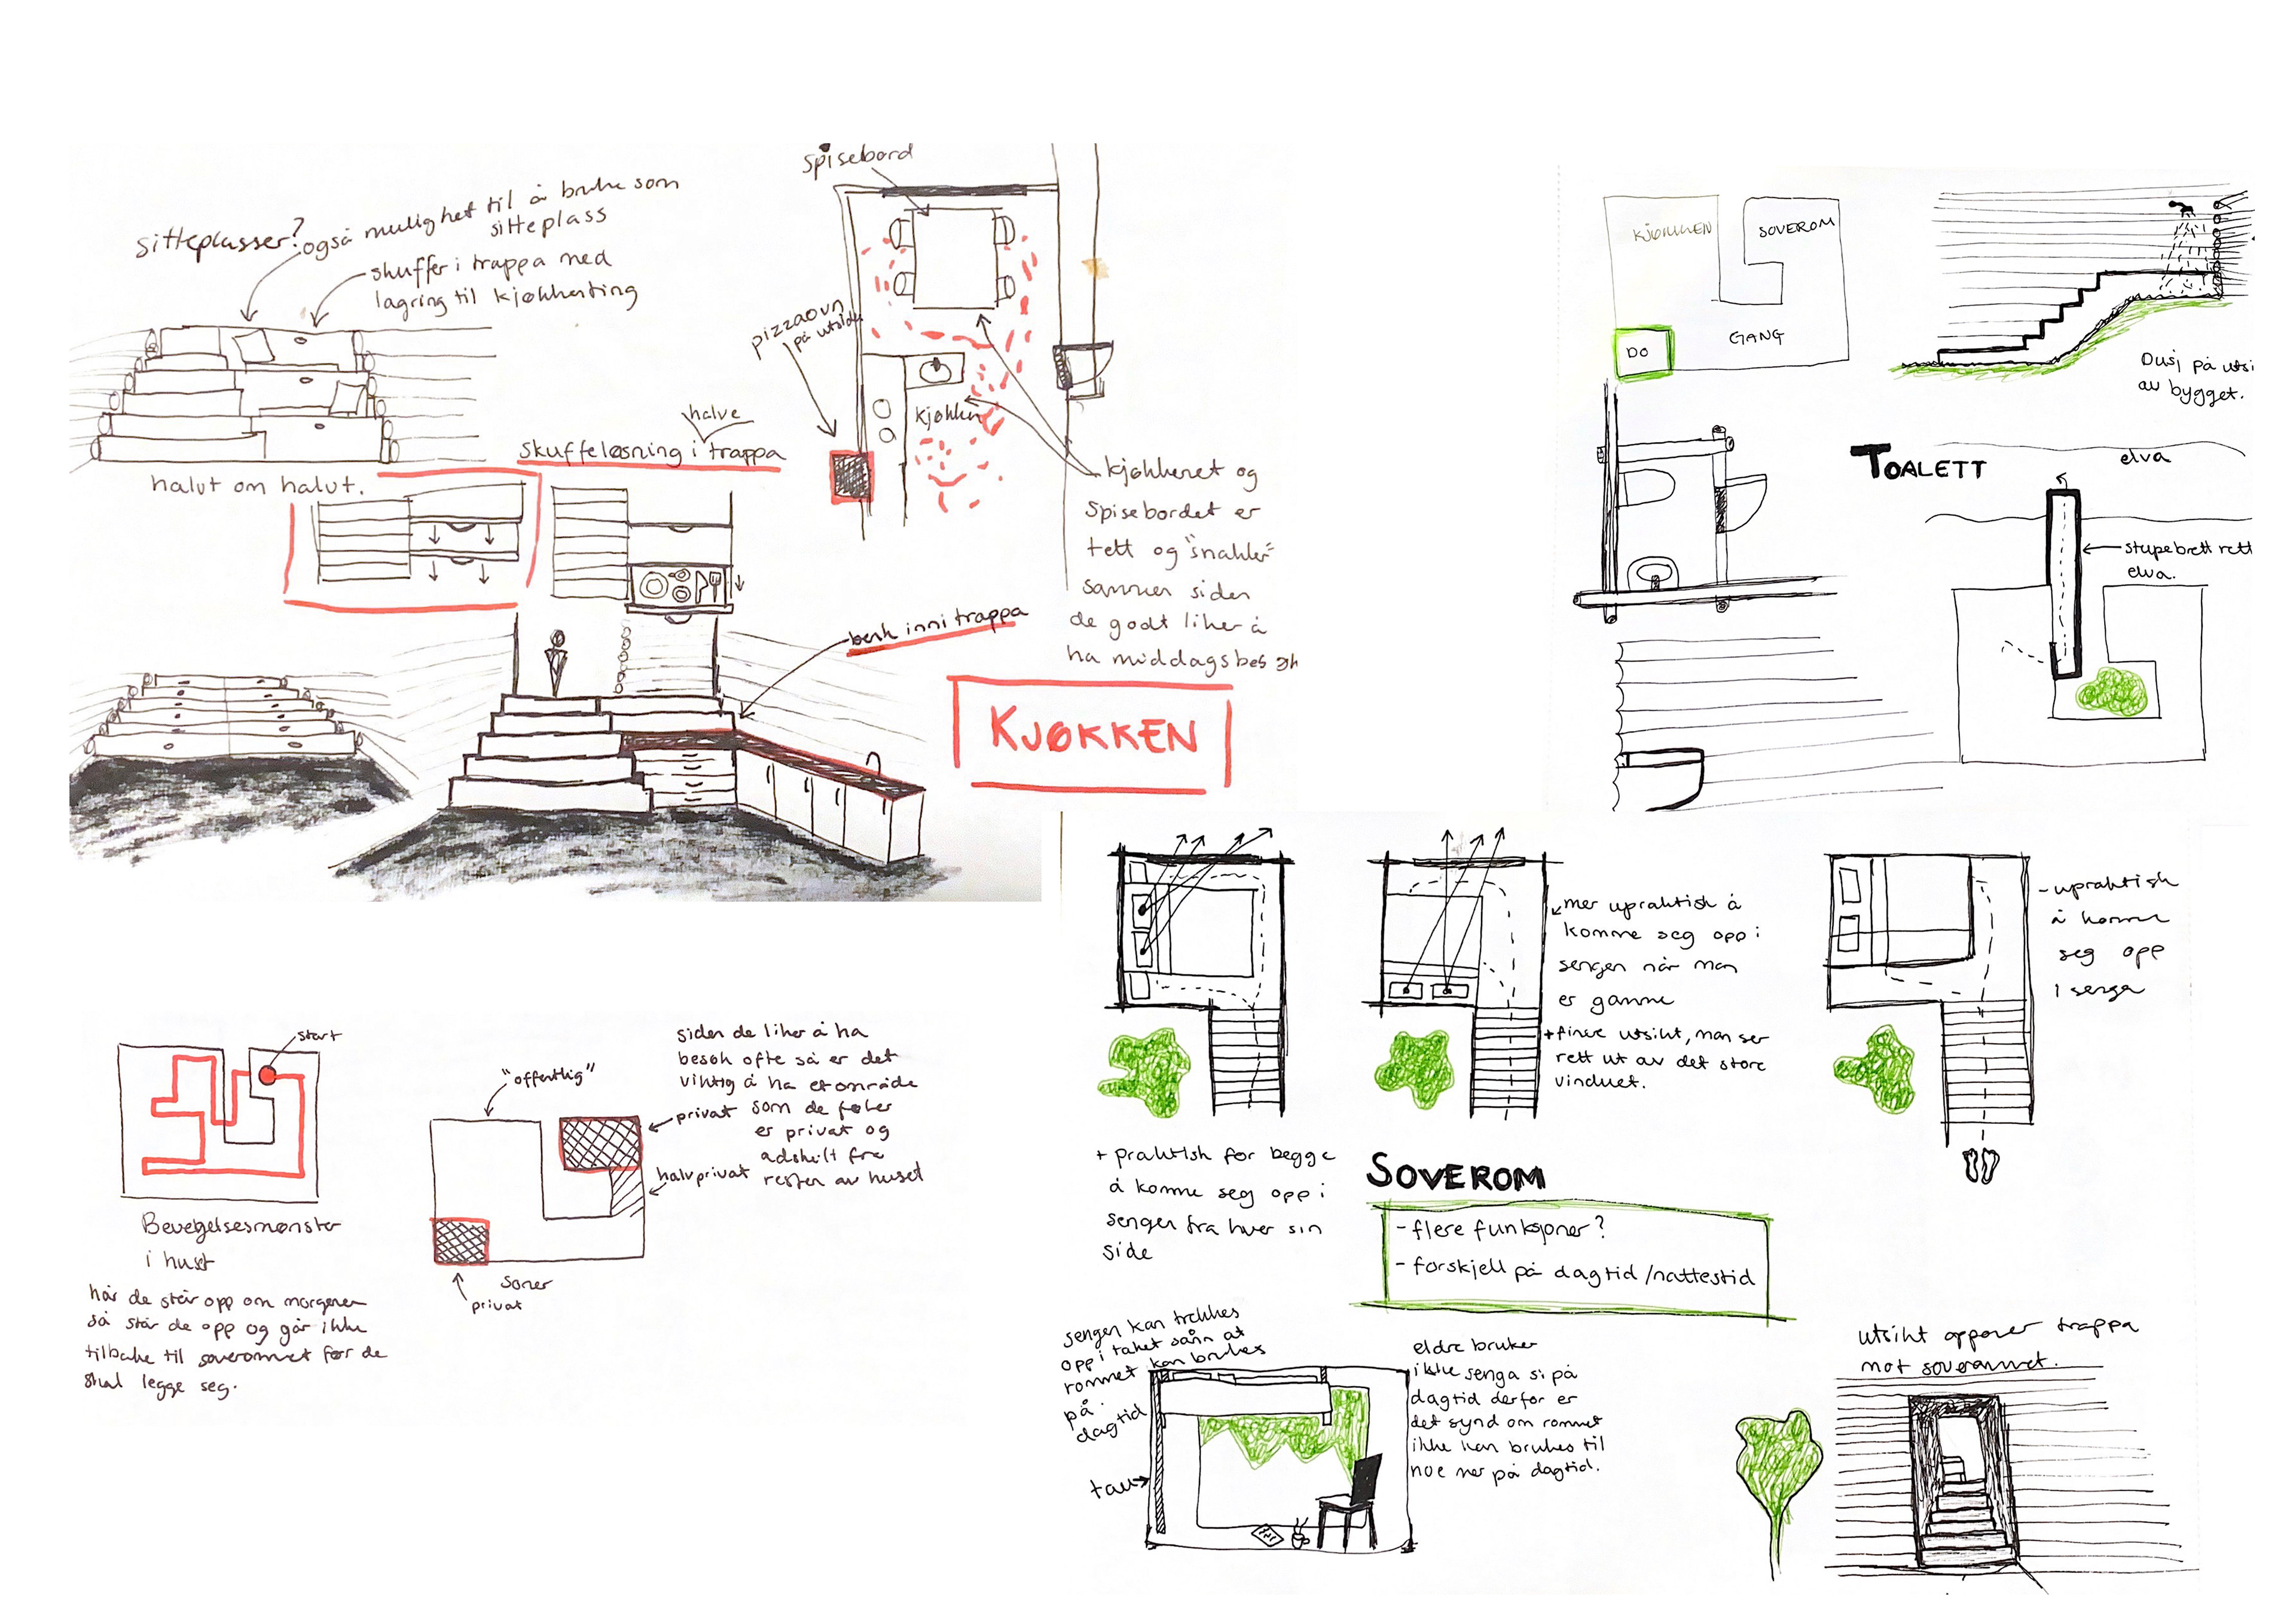 sitteplasser?
også mulighet til å bruke som
sitteplass
skuffer i trappa med
lagring til kjøkkenting
halvt om halvt.
halve
skuffeløsning i trappa
benk inni trappa
spisebord
pizzaovn
på utsida
kjøkken
kjøkkenet og
spisebordet er
tett og "snakker"
sammen siden
de godt liker å
ha middagsbesøk
KJØKKEN
KJØKKEN
SOVEROM
DO
GANG
Dusj på utsi
av bygget.
TOALETT
elva
stupebrett rett
elva.
mer upraktisk å
komme seg opp i
sengen når man
er gamme
+ finere utsikt, man ser
rett ut av det store
vinduet.
- upraktisk
å komme
seg opp
i senga
+ praktisk for begge
å komme seg opp i
sengen fra hver sin
side
SOVEROM
- flere funksjoner?
- forskjell på dagtid/nattestid
start
Bevegelsesmønster
i huset
når de står opp om morgenen
så står de opp og går ikke
tilbake til soverommet før de
skal legge seg.
"offentlig"
privat
halvprivat
soner
privat
siden de liker å ha
besøk ofte så er det
viktig å ha et område
som de føler
er privat og
adskilt fra
resten av huset
sengen kan trekkes
opp i taket sånn at
rommet kan brukes
på
dagtid
tau
eldre bruker
ikke senga si på
dagtid derfor er
det synd om rommet
ikke kan brukes til
noe mer på dagtid.
utsikt oppover trappa
mot soverommet.